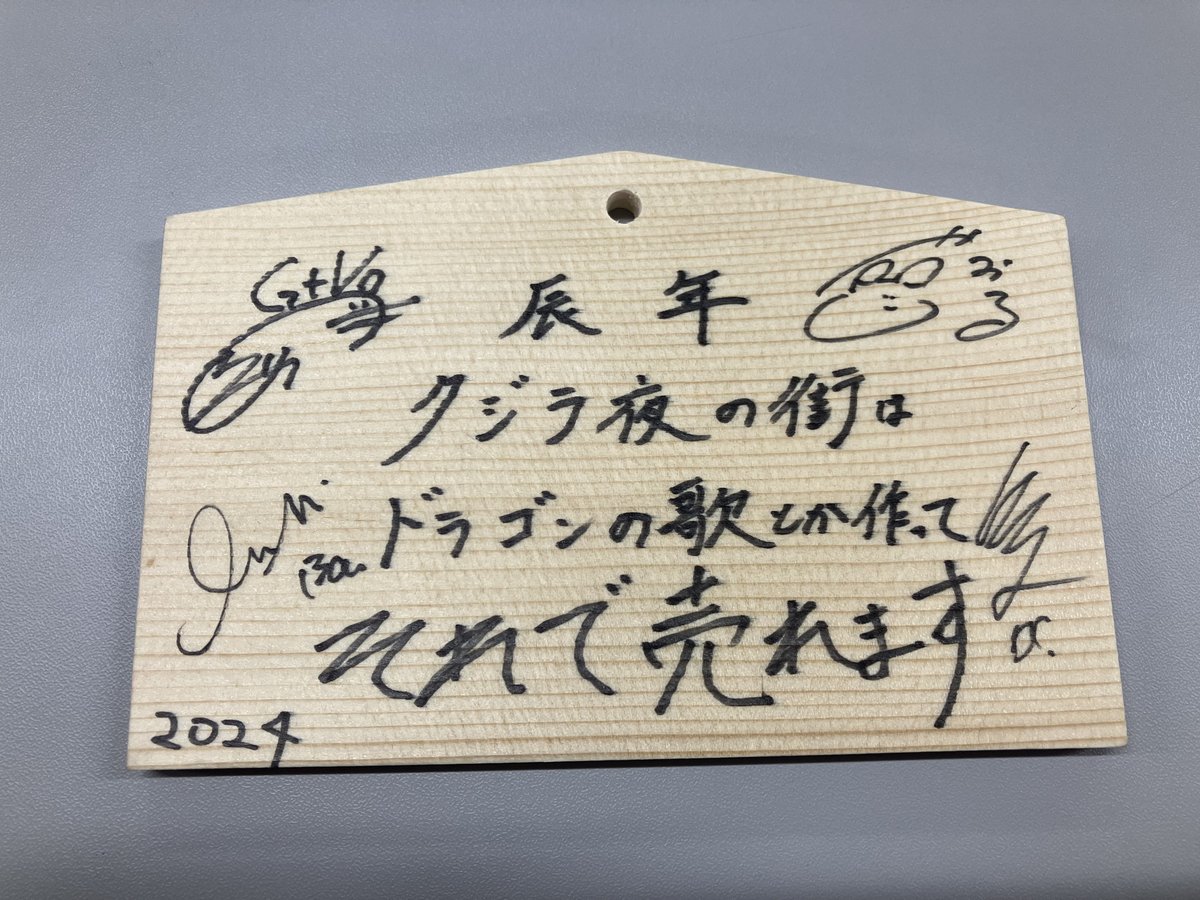 Gt Vo
辰年
クジラ夜の街は
ドラゴンの歌とか作って
Ba.
それで売れます
Dr.
2024